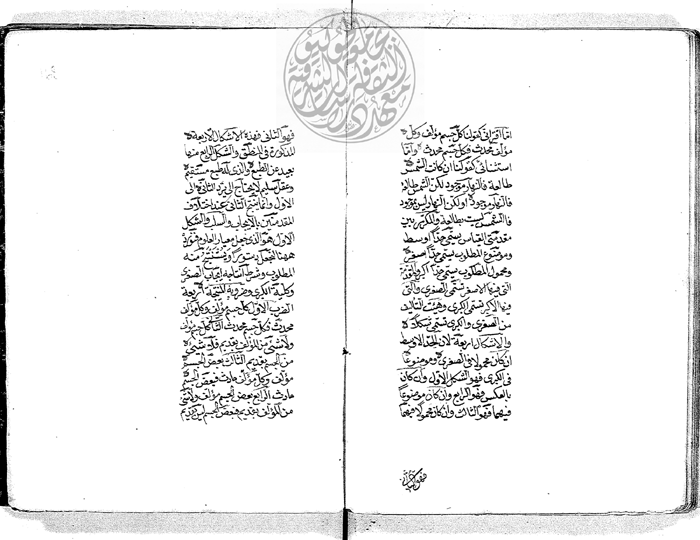 اما اقتراني كقولنا كل جسم مؤلف وكل
مؤلف محدث فكل جسم محدث واما
استثنائي كقولنا ان كانت الشمس
طالعة فالنهار موجود لكن الشمس طالعة
فالنهار موجود او لكن النهار ليس بموجود
فالشمس ليست بطالعة والمكرر بين
مقدمتي القياس يسمى حدا اوسط
وموضوع المطلوب يسمى حدا اصغر
ومحمول المطلوب يسمى حدا اكبر والمقدمة
التي فيها الاصغر تسمى الصغرى والتي
فيها الاكبر تسمى الكبرى وهيئة التاليف
من الصغرى والكبرى تسمى شكلا
والاشكال اربعة لان الحد الاوسط
ان كان محمولا في الصغرى وموضوعا
في الكبرى فهو الشكل الاول وان كان
بالعكس فهو الرابع وان كان موضوعا
فيهما فهو الثالث وان كان محمولا فيهما
فهو الثاني فهذه الاشكال الاربعة
المذكورة في المنطق والشكل الرابع منها
بعيد عن الطبع والذي له طبع مستقيم
وعقل سليم لا يحتاج الى رد الثاني الى
الاول وانما ينتج الثاني عند اختلاف
المقدمتين بالايجاب والسلب والشكل
الاول هو الذي جعل معيار العلوم فنورده
ههنا ليجعل دستورا ويستنتج منه
المطلوب وشرط انتاجه ايجاب الصغرى
وكلية الكبرى وضروبه المنتجة اربعة
الضرب الاول كل جسم مؤلف وكل مؤلف
محدث فكل جسم محدث الثاني كل جسم مؤلف
ولا شئ من المؤلف بقديم فلا شئ
من الجسم بقديم الثالث بعض الجسم
مؤلف وكل مؤلف حادث فبعض الجسم
حادث الرابع بعض الجسم مؤلف ولا شئ
من المؤلف بقديم فبعض الجسم ليس بقديم